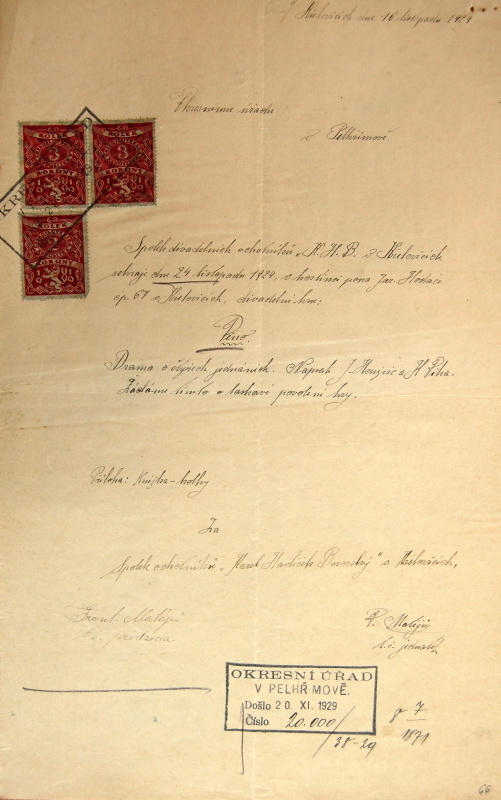 V Křelovicích dne 16 listopadu 1929
Okresnímu úřadu
v Pelhřimově
KOLEK
3
KORUNY
KOLEK
3
KORUNY
KOLEK
2
KORUNY
Spolek divadelních ochotníků „K. H. B. v Křelovicích
sehraje dne 24 listopadu 1929, v hostinci pana Jar.
čp. 67 v Křelovicích, divadelní hru:
Drama o jednáních. Napsali J. a
Žádáme tímto o laskavé povolení hry.
Příloha: Knížka-
Za
Spolek ochotníků „Karel Havlíček Borovský" v Křelovicích,
Frant. Matějů
t. č. předseda
Matějů
t. č. jednatel
OKRESNÍ ÚŘAD
V PELHŘIMOVĚ.
Došlo 20 XI. 1929
Číslo 20.000/
38-29
7
1871
66